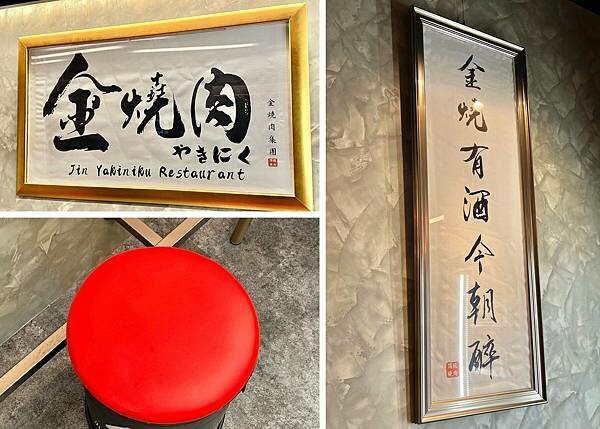 金燒肉
やきにく
Jin Yakiniku Restaurant
金燒肉集團
金燒有酒今朝醉